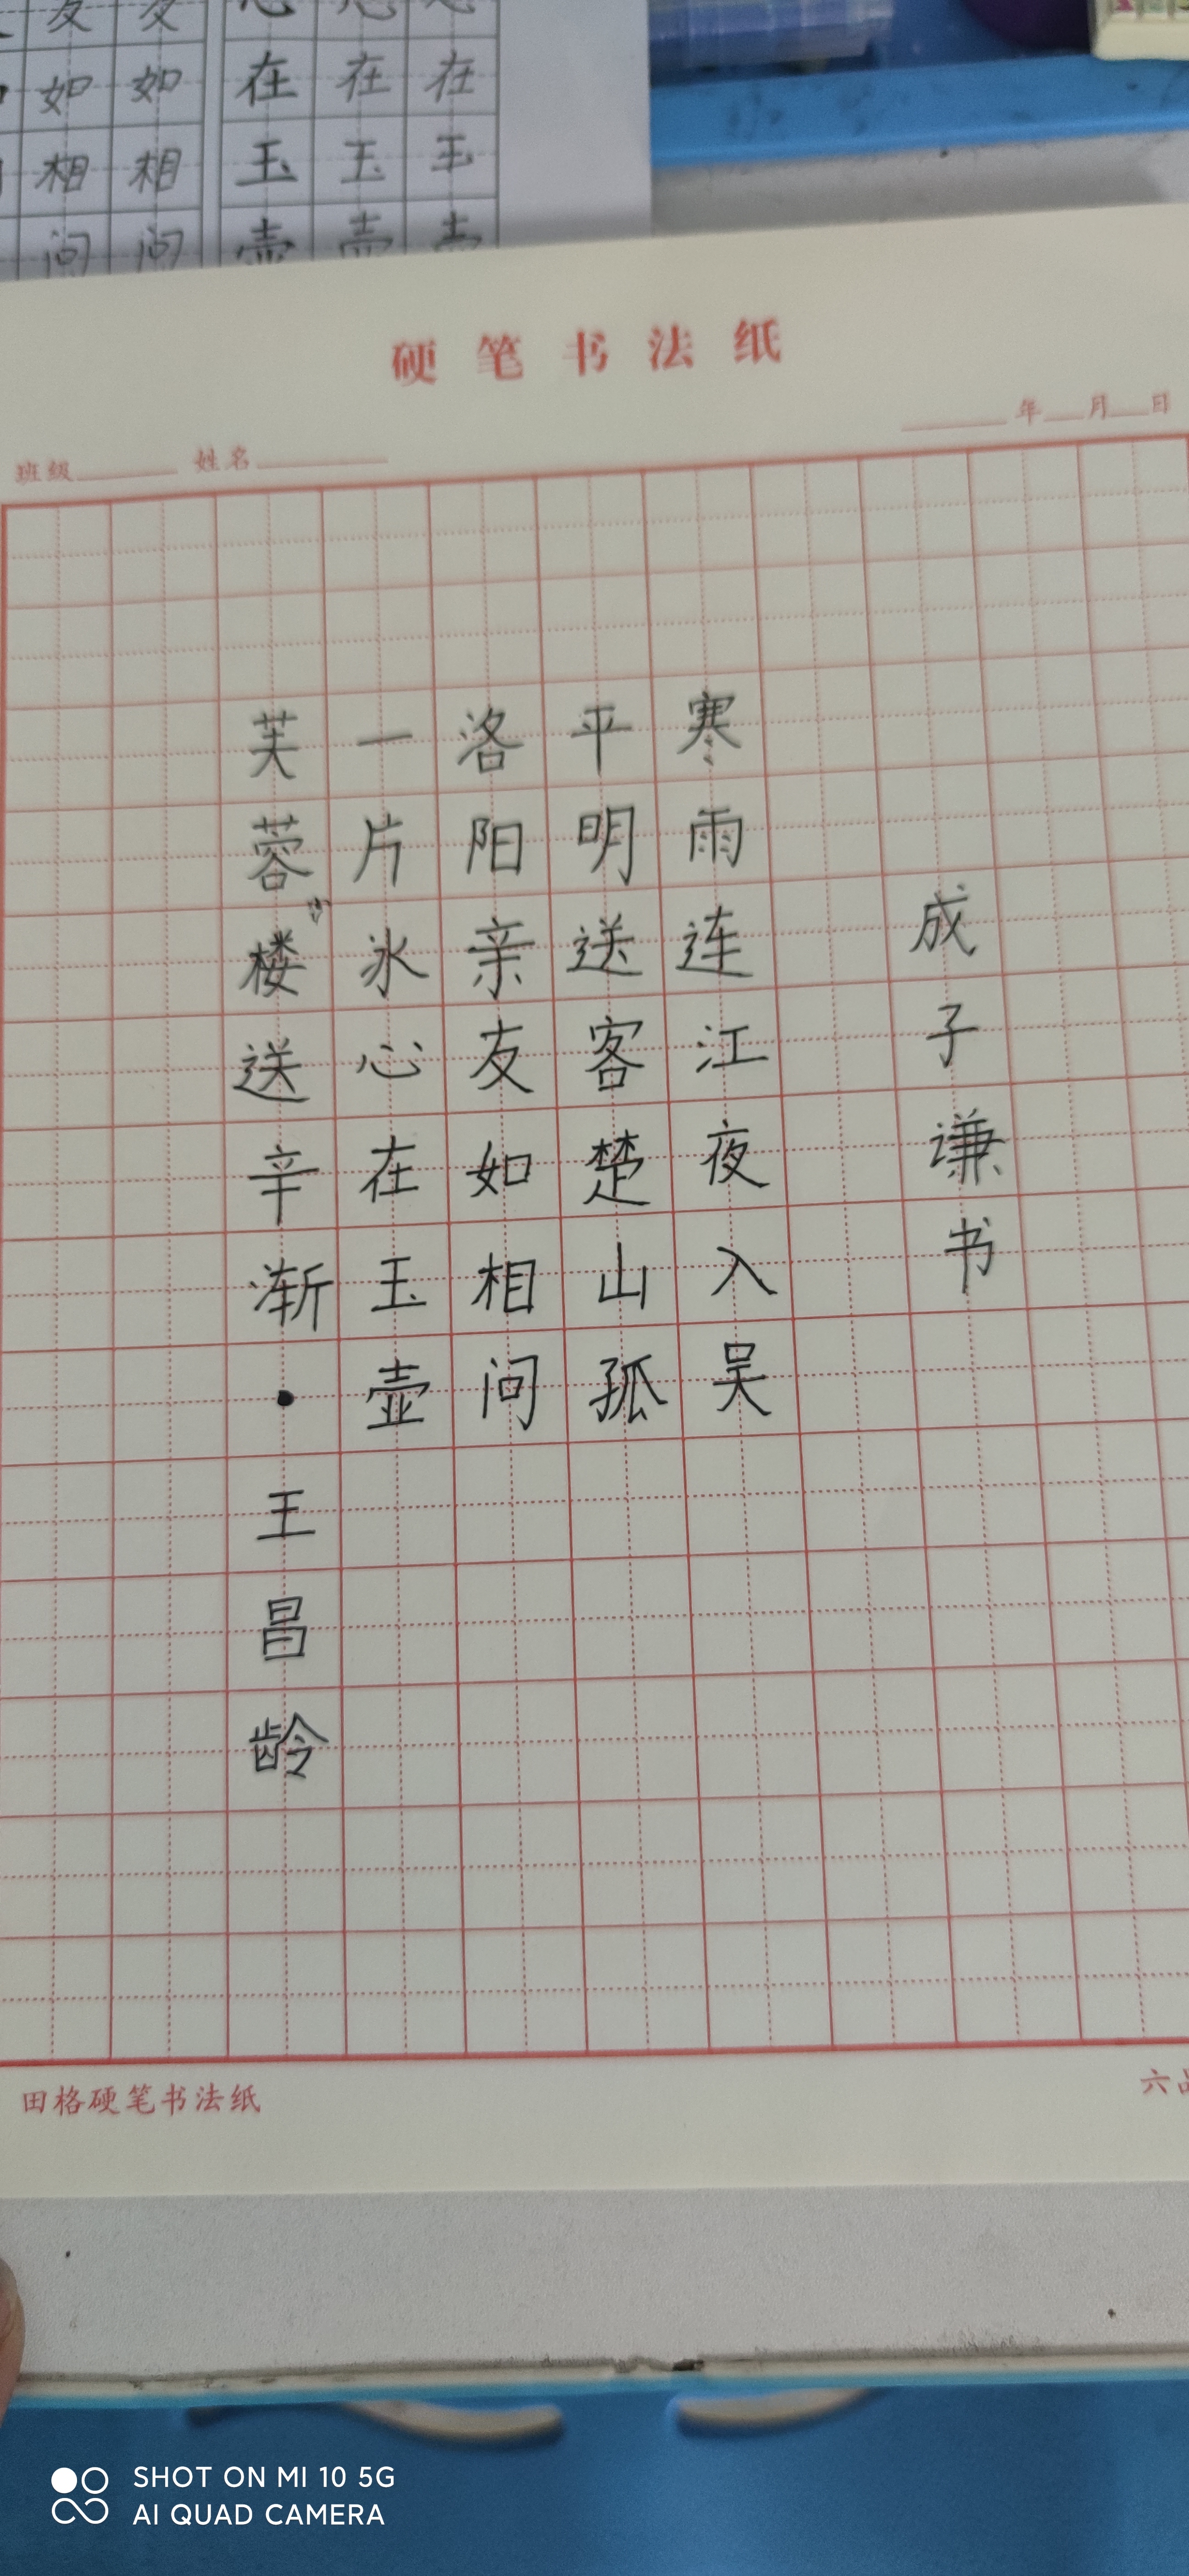 友 友 心 心 心
如 如 在 在 在
相 相 玉 玉 玉
问 问 壶 壶 壶
硬笔书法纸
班级 姓名 年 月 日
成子谦书
寒雨连江夜入吴
平明送客楚山孤
洛阳亲友如相问
一片冰心在玉壶
芙蓉楼送辛渐·王昌龄
田格硬笔书法纸
六
SHOT ON MI 10 5G
AI QUAD CAMERA